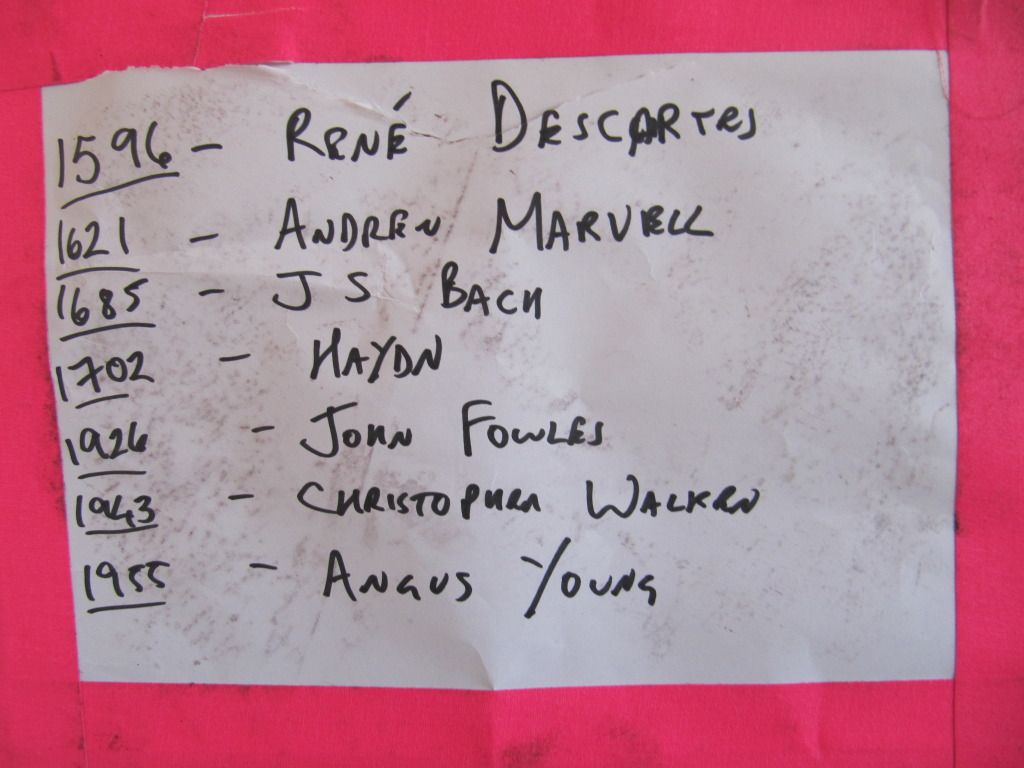 1596 - RENÉ DESCARTES
1621 - ANDREW MARVELL
1685 - J S BACH
1702 - HAYDN
1926 - JOHN FOWLES
1943 - CHRISTOPHER WALKEN
1955 - ANGUS YOUNG